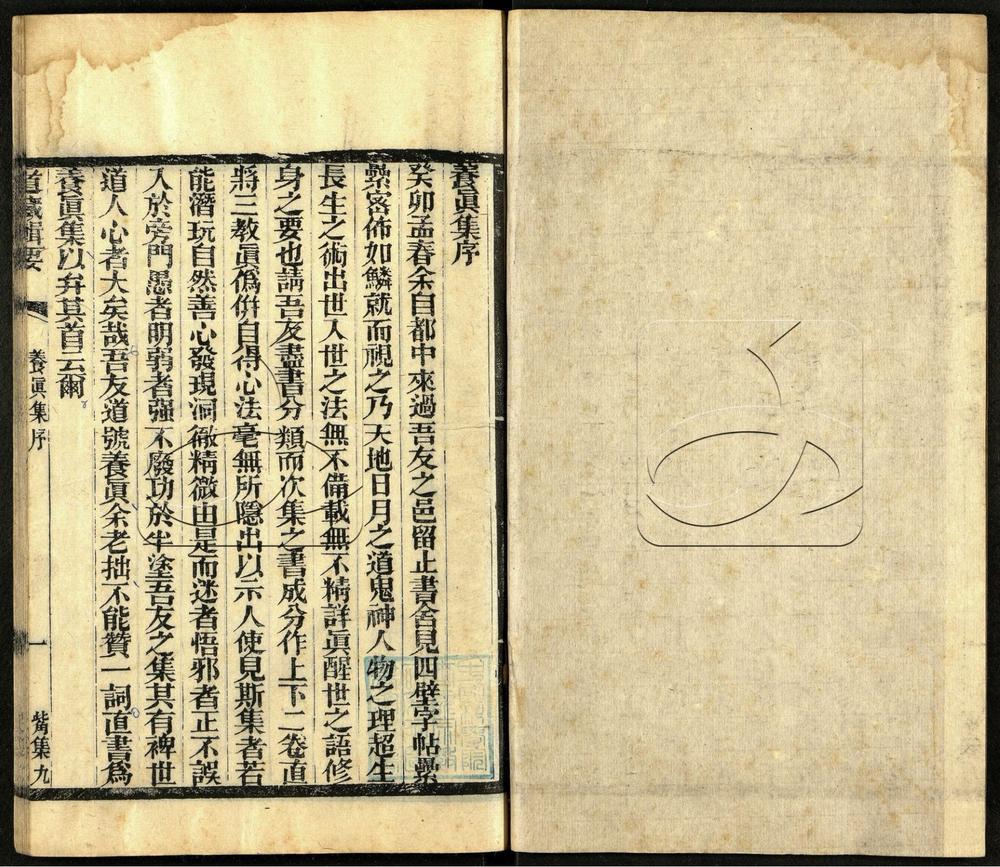 養眞集序
癸卯孟春余自都中來過吾友之邑留止書舍見四壁字帖纍
纍密佈如鱗就而視之乃天地日月之道鬼神人物之理超生
長生之術出世入世之法無不備載無不精詳眞醒世之語修
身之要也請吾友盡書分類而次集之書成分作上下二卷直
將三教眞僞併自得心法毫無所隱出以示人使見斯集者若
能潛玩自然善心發現洞徹精微由是而迷者悟邪者正不誤
入於旁門愚者明弱者強不廢功於半塗吾友之集其有裨世
道人心者大矣哉吾友道號養眞余老拙不能贊一詞直書爲
養眞集以弁其首云爾
道藏輯要
養眞集序
一
觜集九